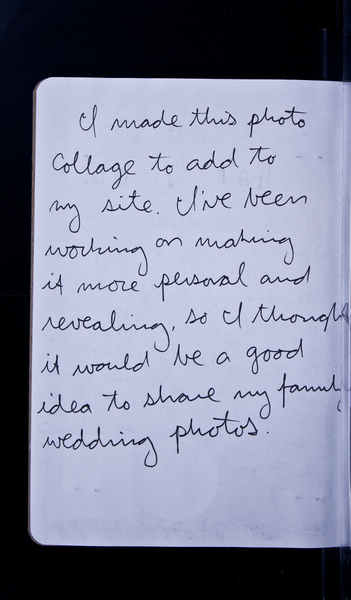 I made this photo
collage to add to
my site. I've been
working on making
it more personal and
revealing, so I thought
it would be a good
idea to share my family
wedding photos.